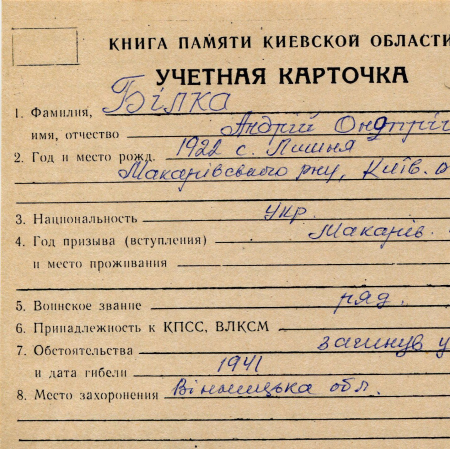 КНИГА ПАМЯТИ КИЕВСКОЙ ОБЛАСТИ
УЧЕТНАЯ КАРТОЧКА
1. Фамилия, Білка
имя, отчество Андрій
2. Год и место рожд. 1922 с. Лишня
Макарівського р-ну, Київ. о
3. Национальность укр.
4. Год призыва (вступления) Макарів.
и место проживания
5. Воинское звание ряд.
6. Принадлежность к КПСС, ВЛКСМ
7. Обстоятельства загинув у
и дата гибели 1941
8. Место захоронения Вінницька обл.